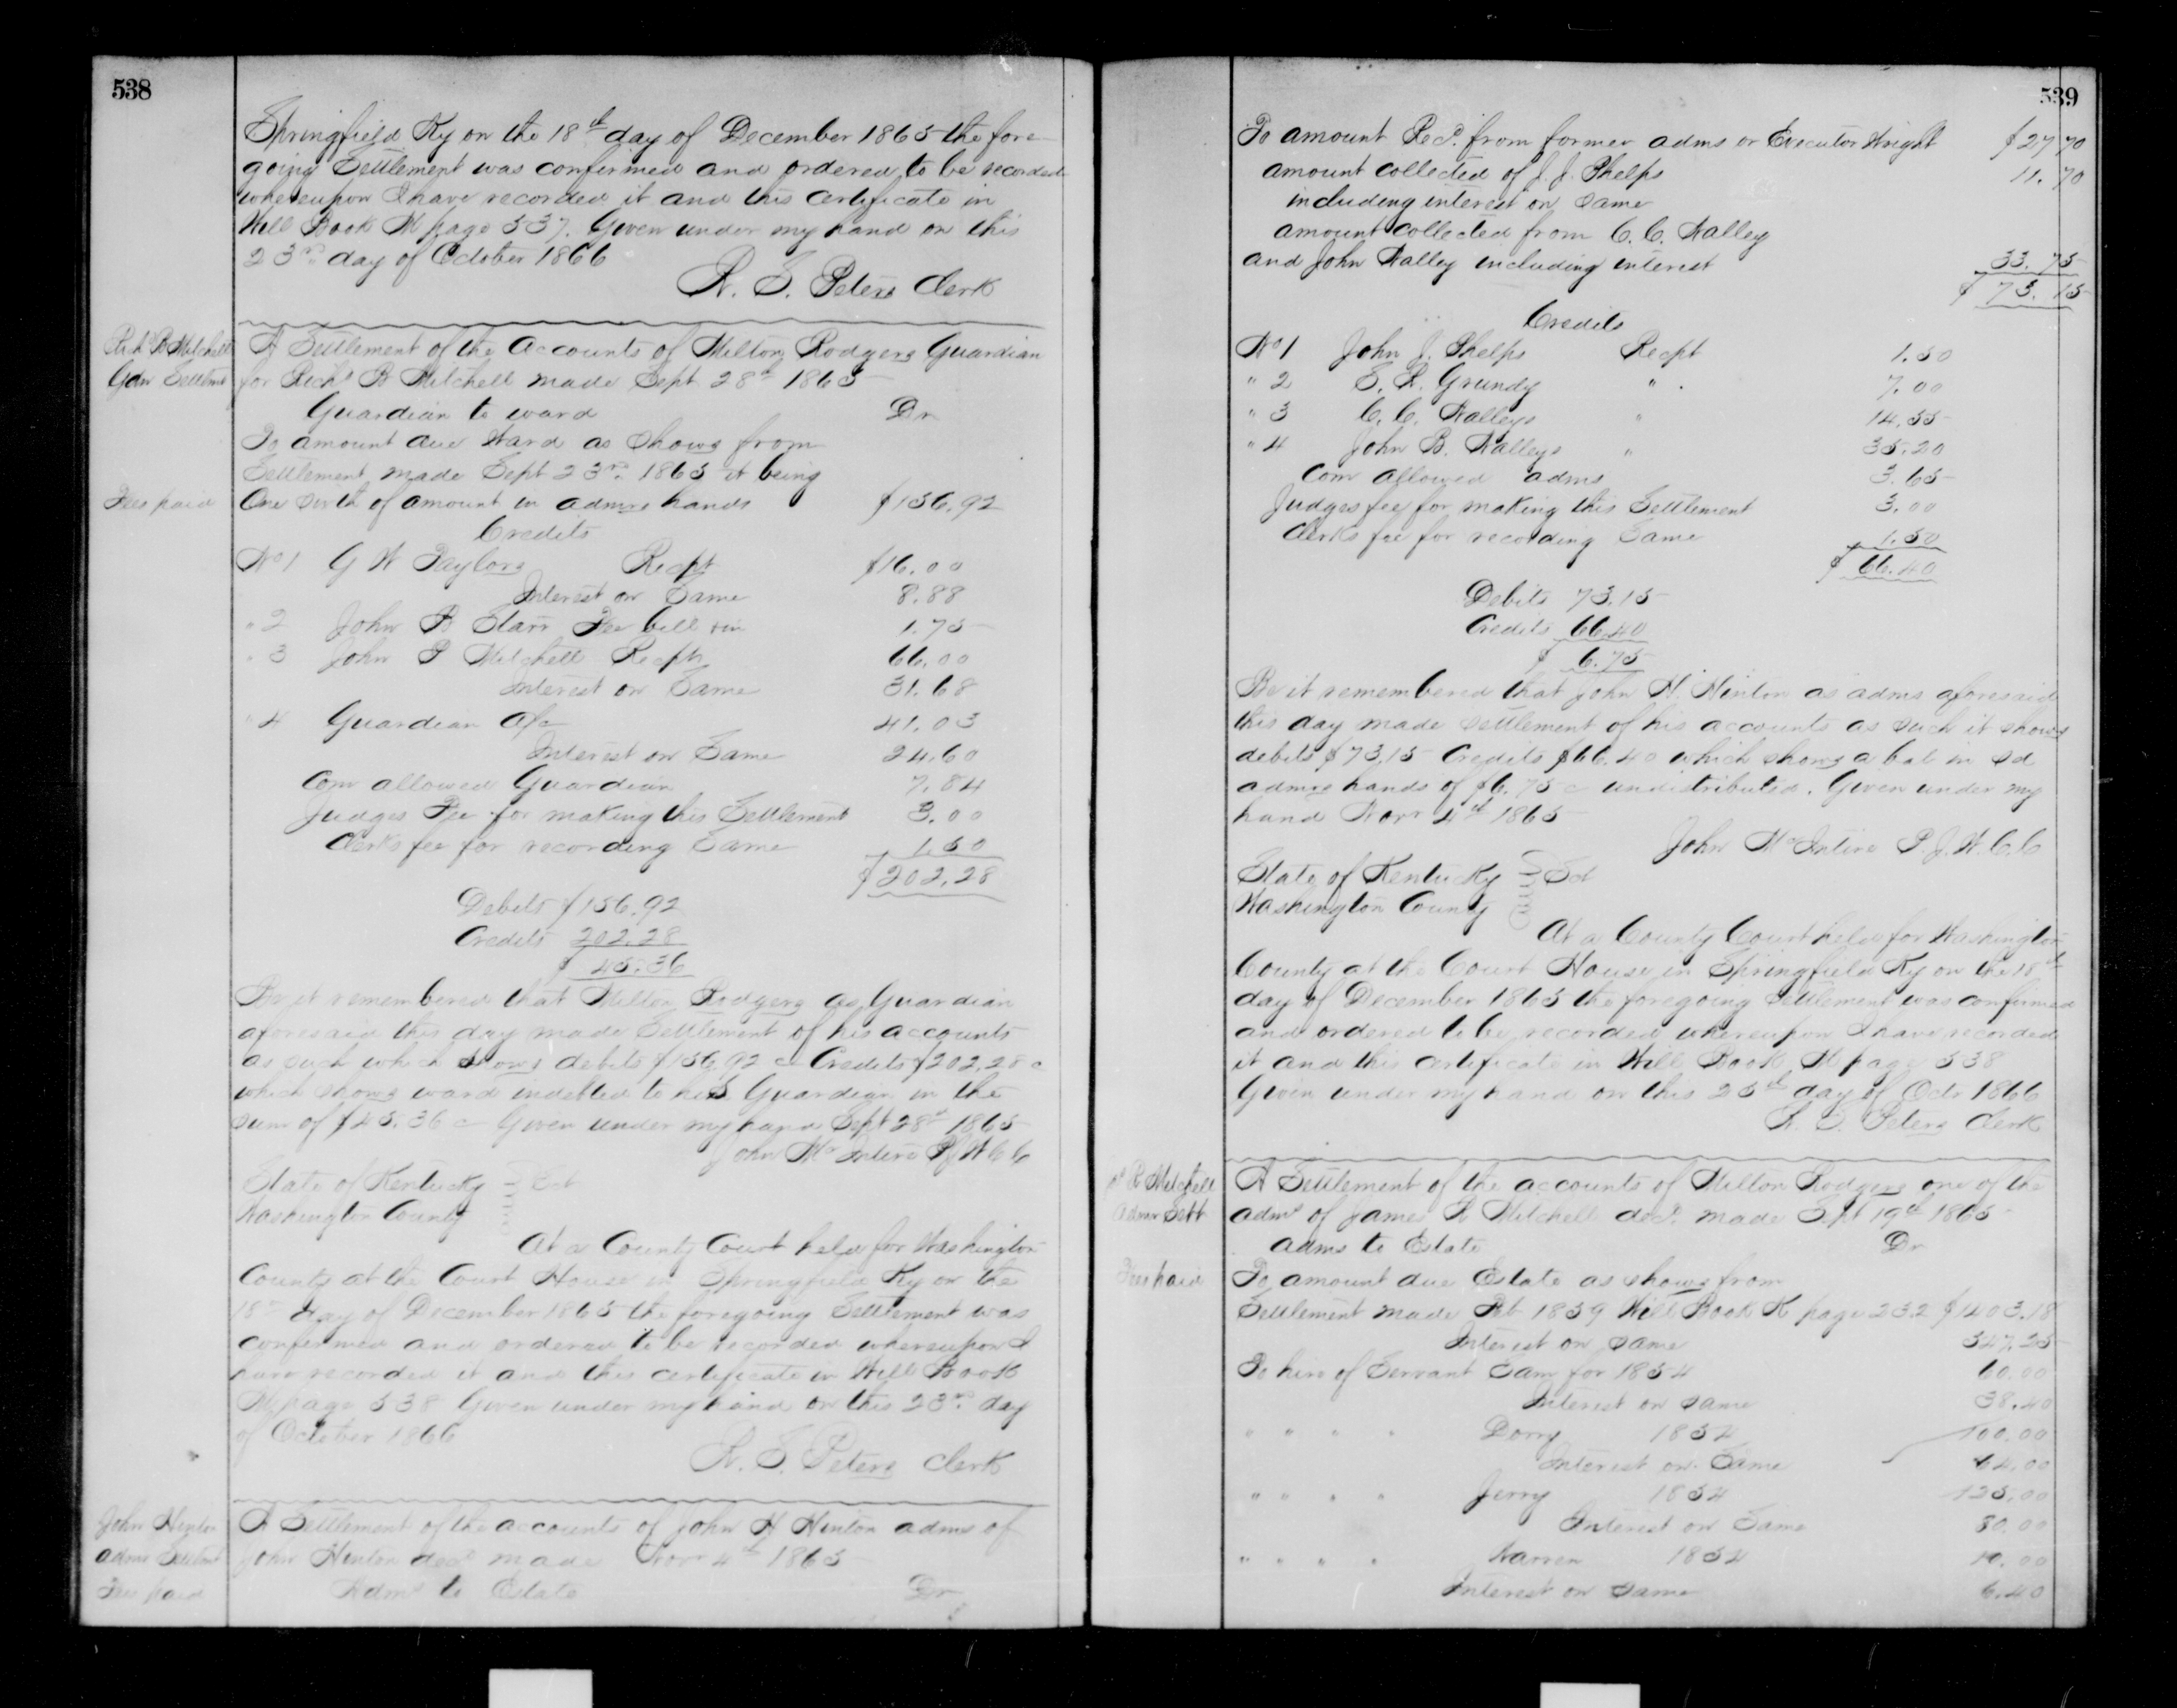 538
Springfield Ky on the 18th day of December 1865 the fore
going Settlement was confirmed and ordered to be recorded
whereupon I have recorded it and this certificate in
Will Book M page 537. Given under my hand on this
23rd day of October 1866
Clerk
Richd B Mitchell
Gdn Settlmt
A Settlement of the Accounts of Milton Rodgers Guardian
for Richd B Mitchell made Sept 28th 1865
Guardian to ward Dr
To amount due Ward as Shows from
Settlement made Sept 23rd 1865 it being
Fees paid
One sixth of amount in admrs hands $156.92
Credits
No 1 G W Taylors Recpt $16.00
Interest on Same 8.88
" 2 John B Starr Fee bill 1.75
" 3 John P Mitchell Recpt 66.00
Interest on Same 31.68
" 4 Guardian A/c 41.03
Interest on Same 24.60
Com allowed Guardian 7.84
Judges Fee for making this Settlement 3.00
Clerks fee for recording Same 1.50
$202.28
Debits $156.92
Credits 202.28
$45.36
Be it remembered that Milton Rodgers as Guardian
aforesaid this day made Settlement of his accounts
as such which shows debits $156.92 c Credits $202.28 c
which shows ward indebted to his Guardian in the
sum of $45.36 c Given under my hand Sept 28th 1865
John McIntire P J W C C
State of Kentucky } Sct
Washington County
At a County Court held for Washington
County at the Court House in Springfield Ky on the
18th day of December 1865 the foregoing Settlement was
confirmed and ordered to be recorded whereupon I
have recorded it and this certificate in Will Book
M page 538 Given under my hand on this 23rd day
of October 1866
Peters Clerk
John Hinton
Admr Settlmt
Fees paid
A Settlement of the accounts of John H Hinton admr of
John Hinton decd made Novr 4th 1865
Admr to Estate Dr
539
To amount Recd. from former adms or Executor Wright $27 70
amount collected of J. J. Phelps 11. 70
including interest on Same
amount collected from C. C. Nalley
and John Nalley including interest 33. 75
$ 73. 15
Credits
No 1 John J. Phelps Recpt 1.50
" 2 Grundy " 7.00
" 3 C. C. Nalleys " 14.55
" 4 John B. Nalleys " 35.20
Com allowed adms 3.65
Judges fee for making this Settlement 3.00
Clerks fee for recording Same 1.50
$ 66.40
Debits 73.15
Credits 66.40
$ 6.75
Be it remembered that John H. Hinton as adms aforesaid
this day made settlement of his accounts as such it shows
debits $73.15 Credits $66.40 which shows a bal in sd
admrs hands of $6.75 c undistributed. Given under my
hand Novr 4th 1865
John McIntire P. J. W. C. C
State of Kentucky } Sct
Washington County
At a County Court held for Washington
County at the Court House in Springfield Ky on the 18th
day of December 1865 the foregoing Settlement was confirmed
and ordered to be recorded whereupon I have recorded
it and this certificate in Will Book M page 538
Given under my hand on this 25th day of Octr 1866
Peters Clerk
R Mitchell
Admr Sett
A Settlement of the accounts of Milton Rodgers one of the
admrs of James R Mitchell decd. made Sept 19th 1865
Adms to Estate Dr
Fees paid
To amount due Estate as shows from
Settlement made Feb 1859 Will Book K page 232 $1403.18
Interest on same 547.25
To hire of Servant Sam for 1854 60.00
Interest on same 38.40
" " " " Dorry 1854 100.00
Interest on Same 64.00
" " " " Jerry 1854 125.00
Interest on Same 80.00
" " " " Warren 1854 10.00
Interest on same 6.40